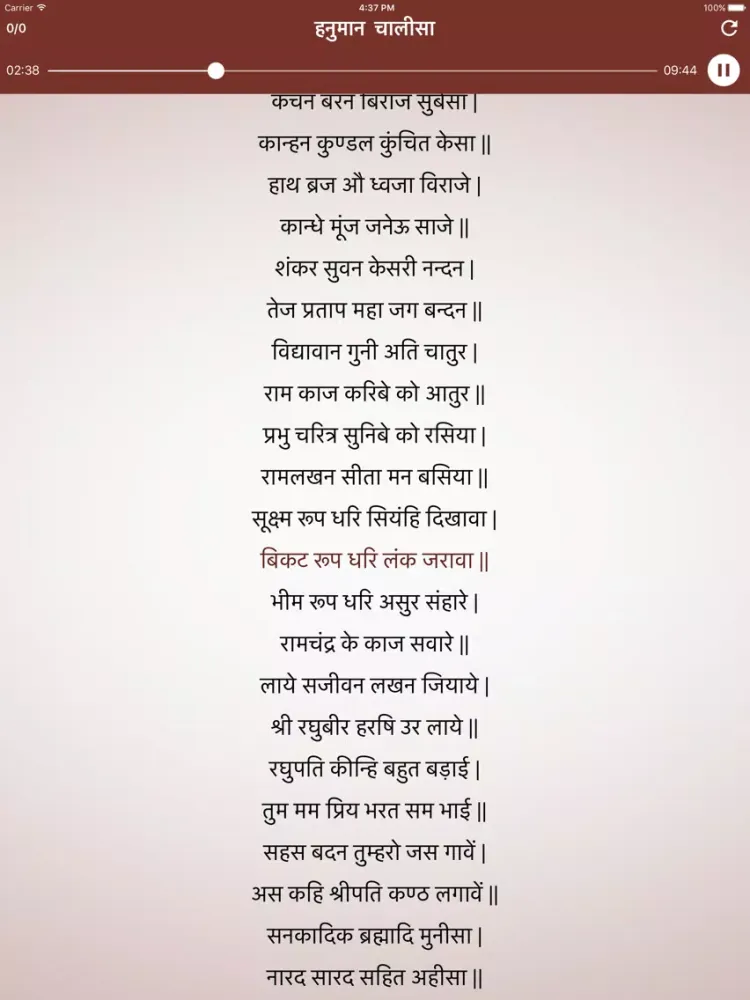 Carrier 4:37 PM 100%
0/0 हनुमान चालीसा
02:38 09:44
कंचन बरन बिराज सुबेसा |
कान्हन कुण्डल कुंचित केसा ||
हाथ ब्रज औ ध्वजा विराजे |
कान्धे मूंज जनेऊ साजे ||
शंकर सुवन केसरी नन्दन |
तेज प्रताप महा जग बन्दन ||
विद्यावान गुनी अति चातुर |
राम काज करिबे को आतुर ||
प्रभु चरित्र सुनिबे को रसिया |
रामलखन सीता मन बसिया ||
सूक्ष्म रूप धरि सियंहि दिखावा |
बिकट रूप धरि लंक जरावा ||
भीम रूप धरि असुर संहारे |
रामचंद्र के काज सवारे ||
लाये सजीवन लखन जियाये |
श्री रघुबीर हरषि उर लाये ||
रघुपति कीन्हि बहुत बड़ाई |
तुम मम प्रिय भरत सम भाई ||
सहस बदन तुम्हरो जस गावें |
अस कहि श्रीपति कण्ठ लगावें ||
सनकादिक ब्रह्मादि मुनीसा |
नारद सारद सहित अहीसा ||